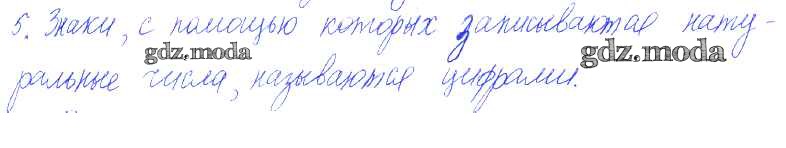 5. Знаки, с помощью которых записываются нату-
gdz.moda gdz.moda
ральные числа, называются цифрами.